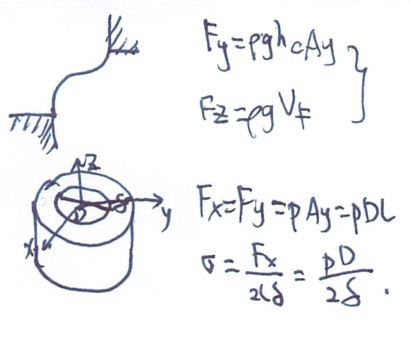 Fy=ρghcAy
Fz=ρgVF
z
y
x
D
δ
Fx=Fy=pAy=pDL
σ=Fx/2lδ=pD/2δ.